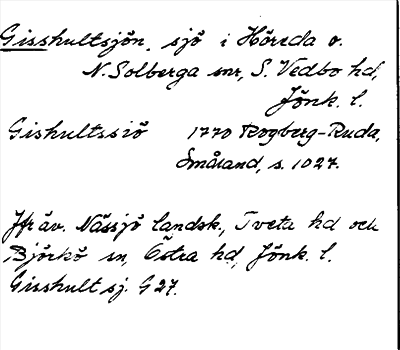 Gisshultsjön, sjö i Hörsda o.
N. Solberga snr, S. Vedbo hd,
Jönk. l.
Gishultssiö 1770 Rogberg-Ruda,
Småland, s. 1027.
Jfr äv. Nässjö landsk., Tveta hd och
Björkö sn, Östra hd, Jönk. l.
Gisshult sj. G 27.